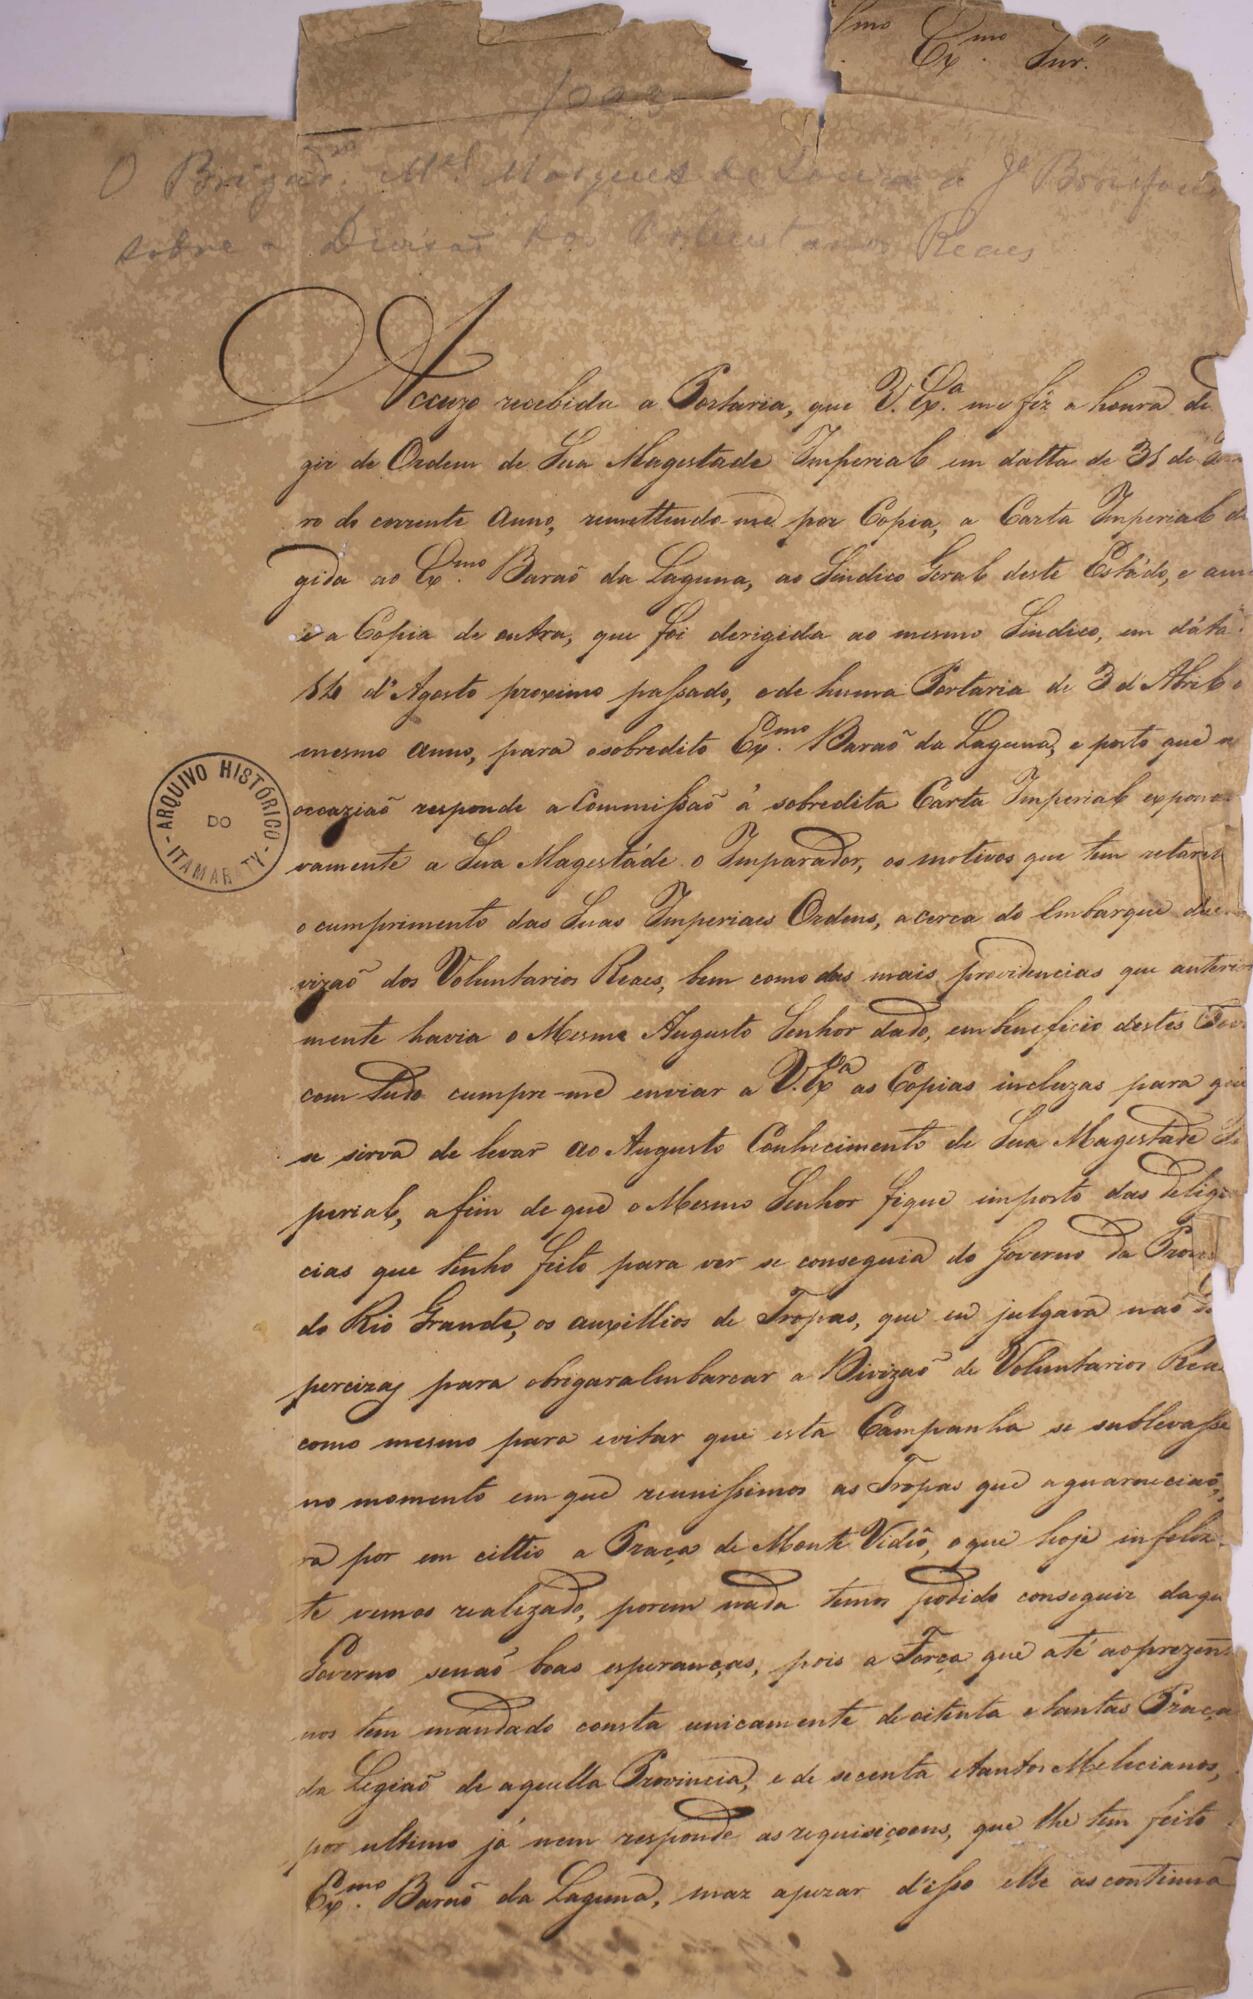 Exmo. Snr.
O Brigadro. Mel. Marques de Souza a Je Bonifacio
sobre a Divisão dos Voluntarios Reaes
Accuzo recebida a Portaria, que V. Exa. me fêz a honra de
gir de Ordem de Sua Magestade Imperial em datta de 31 de
ro do corrente Anno, remettendo-me por Copia, a Carta Imperial di
gida ao Exmo. Baraõ da Laguna, ao Sindico Geral deste Estádo, e
a Copia de outra, que foi derigida ao mesmo Sindico, em dáta
14 d'Agosto proximo passado, e de huma Portaria de 3 d'Abril
mesmo anno, para o sobredito Exmo. Baraõ da Laguna, e posto que
occaziaõ responde a Commissaõ á sobredita Carta Imperial expon
vamente a Sua Magestáde o Imparador, os motivos que tem retar
o cumprimento das Suas Imperiaes Ordens, acerca do Embarque
vizaõ dos Voluntarios Reaes, bem como das mais providencias que anterior
mente havia o Mesmo Augusto Senhor dado, em beneficio destes
com tudo cumpre-me enviar a V. Exa. as Copias incluzas para que
se sirva de levar ao Augusto Conhecimento de Sua Magestade Im
perial, a fim de que o Mesmo Senhor fique imposto das delige
cias que tenho feito para ver se conseguia do Governo da Prov
do Rio Grande, os auxillios de Tropas, que eu julgava naõ só
percizas para obrigar a Embarcar a Divizaõ de Voluntarios Rea
como mesmo para evitar que esta Campanha se sublevasse
no momento em que reunissimos as Tropas que a guarneciaõ,
ra por em cittio a Praça de Monte Vidiô, o que hoje infeliz
te vemos realizado, porem nada temos podido conseguir daqu
Governo senaõ boas esperanças, pois a Força que até ao prezen
nos tem mandado consta unicamente de oitenta e tantas Praça
da Legiaõ de aquella Provincia, e de secenta e tantos Melicianos,
por ultimo já nem responde as requisiçoens, que lhe tem feito
Exmo. Baraõ da Laguna, maz apezar d'isso elle as continua
ARQUIVO HISTÓRICO
DO
ITAMARATY